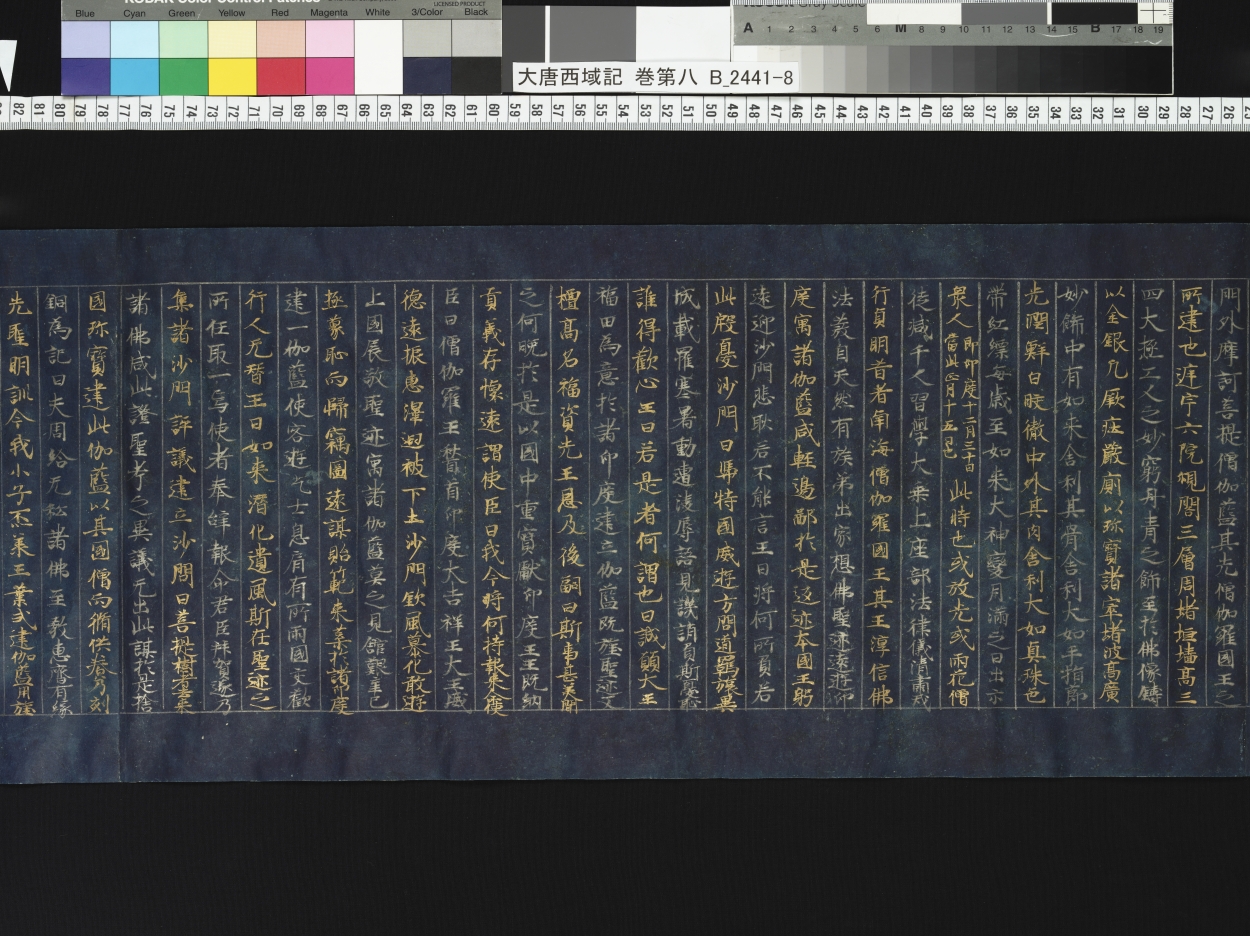 KODAK Color Control Patches
LICENSED PRODUCT
Blue Cyan Green Yellow Red Magenta White 3/Color Black
A 1 2 3 4 5 6 M 8 9 10 11 12 13 14 15 B 17 18 19
大唐西域記 巻第八 B_2441-8
82 81 80 79 78 77 76 75 74 73 72 71 70 69 68 67 66 65 64 63 62 61 60 59 58 57 56 55 54 53 52 51 50 49 48 47 46 45 44 43 42 41 40 39 38 37 36 35 34 33 32 31 30 29 28 27 26
門外摩訶菩提僧伽藍其先僧伽羅國王之
所建也遅宇六院觀閣三層周堵垣墻髙三
四大極工人之妙窮丹青之飾至於佛像鑄
以金銀凡厥莊嚴厠以珎寶諸窣堵波髙廣
妙餝中有如来舎利其骨舎利大如手指節
光潤鮮白皎徹中外其肉舎利大如真珠色
帶紅縹每歳至如来大神變月滿之日出示
衆人即印度十二月三十日當此正月十五日也此時也或放光或雨花僧
徒減千人習學大乗上座部法律儀清肅戒
行貞明昔者南海僧伽羅國王其王淳信佛
法發自天然有族弟出家想佛聖迹遠遊印
度寓諸伽藍咸軽邊鄙於是返迹本國王躬
遠迎沙門悲耿若不能言王曰将何所負若
此殷憂沙門曰憑恃國威遊方問道羇旅異
域載罹寒暑動遭淩辱語見譏誚負斯憂恥
誰得歡心王曰若是者何謂也曰誠願大王
福田為意於諸印度建立伽藍既旌聖迹又
擅髙名福資先王恩及後嗣曰斯事甚美聞
之何晩於是以國中重寶獻印度王王既納
貢義存懷遠謂使臣曰我今将何持報来命使
臣曰僧伽羅王稽首印度大吉祥王大王威
德遠振惠澤遐被下土沙門欽風慕化敢遊
上國展敬聖迹寓諸伽藍莫之見舘艱辛已
極蒙恥而歸竊圖遠謀貽範来葉於諸印度
建一伽藍使客遊乞士息肩有所兩國交歡
行人无替王曰如来潛化遺風斯在聖迹之
所任取一焉使者奉辞報命君臣拜賀遂乃
集諸沙門評議建立沙門曰菩提樹者去来
諸佛咸此證聖考之異議无出此謀於是捨
國珎寶建此伽藍以其國僧而脩供養乃刻
銅為記曰夫周給无私諸佛至教惠濟有縁
先聖明訓今我小子丕承王業式建伽藍用旌